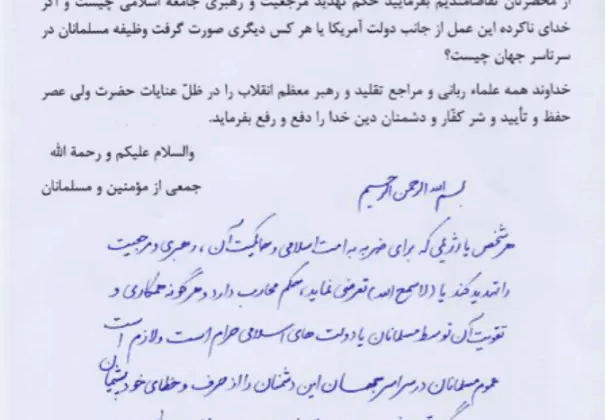 از محضرتان تقاضامندیم بفرمایید حکم تهدید مرجعیت و رهبری جامعه اسلامی چیست و اگر
خدای ناکرده این عمل از جانب دولت آمریکا یا هر کس دیگری صورت گرفت وظیفه مسلمانان در
سرتاسر جهان چیست؟
خداوند همه علماء ربانی و مراجع تقلید و رهبر معظم انقلاب را در ظلّ عنایات حضرت ولی عصر
حفظ و تأیید و شر کفّار و دشمنان دین خدا را دفع و رفع بفرماید.
والسلام علیکم و رحمة الله
جمعی از مؤمنین و مسلمانان
بسم الله الرحمن الرحیم
هر شخص یا رژیمی که برای ضربه به امت اسلامی و حاکمیت آن، رهبری و مرجعیت
را تهدید کند یا (لا سمح الله) تعرضی نماید، حکم محارب دارد و هرگونه همکاری و
تقویت آن توسط مسلمانان یا دولت های اسلامی حرام است و لازم است
عموم مسلمانان در سراسر جهان این دشمنان را از حرف و خطای خود پشیمان